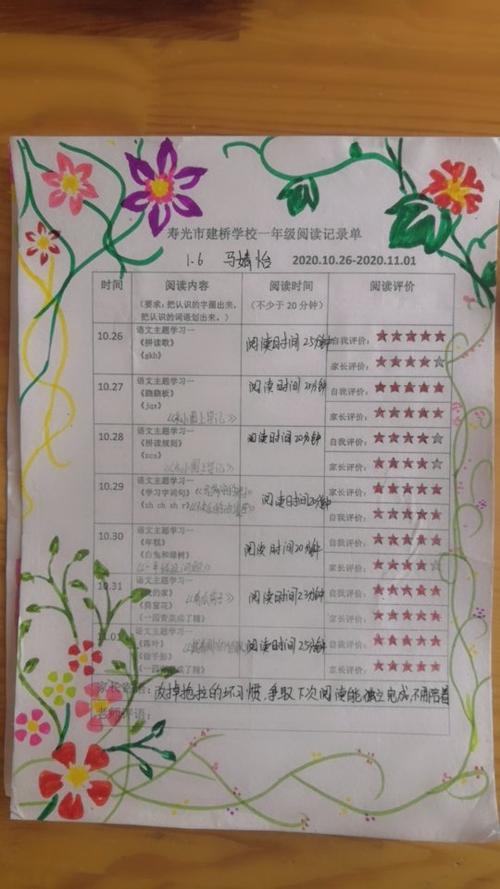 寿光市建桥学校一年级阅读记录单
1.6 马婧怡 2020.10.26-2020.11.01
时间 阅读内容 阅读时间 阅读评价
(要求:把认识的字圈出来,把认识的词语划出来。) (不少于20分钟)
10.26 语文主题学习一 阅读时间25分钟 自我评价:★★★★★
《拼读歌》
《gkh》 家长评价:★★★★☆
10.27 语文主题学习一 阅读时间20分钟 自我评价:★★★★★
《跷跷板》
《jqx》 家长评价:★★★★★
10.28 语文主题学习一 阅读时间20分钟 自我评价:★★★★☆
《拼读规则》
《zcs》 家长评价:★★★★☆
10.29 语文主题学习一 阅读时间 分钟 家长评价:★★★★★
《学习字词句》
《zh ch sh r》 自我评价:★★★★★
10.30 语文主题学习一 阅读时间20分钟 自我评价:★★★★★
《年糕》
《白兔和绿树》 家长评价:★★★★
10.31 语文主题学习一 阅读时间23分钟 自我评价:★★★★★
的家》
《剪窗花》 家长评价:★★★★★
《一园青菜成了精》
语文主题学习一 阅读时间25分钟 自我评价:★★★★★
家长评价:★★★★★
《一园青菜成了精》
家长 语:改掉拖拉的坏习惯,争取下次阅读能独立完成,不用陪着
老师评语: